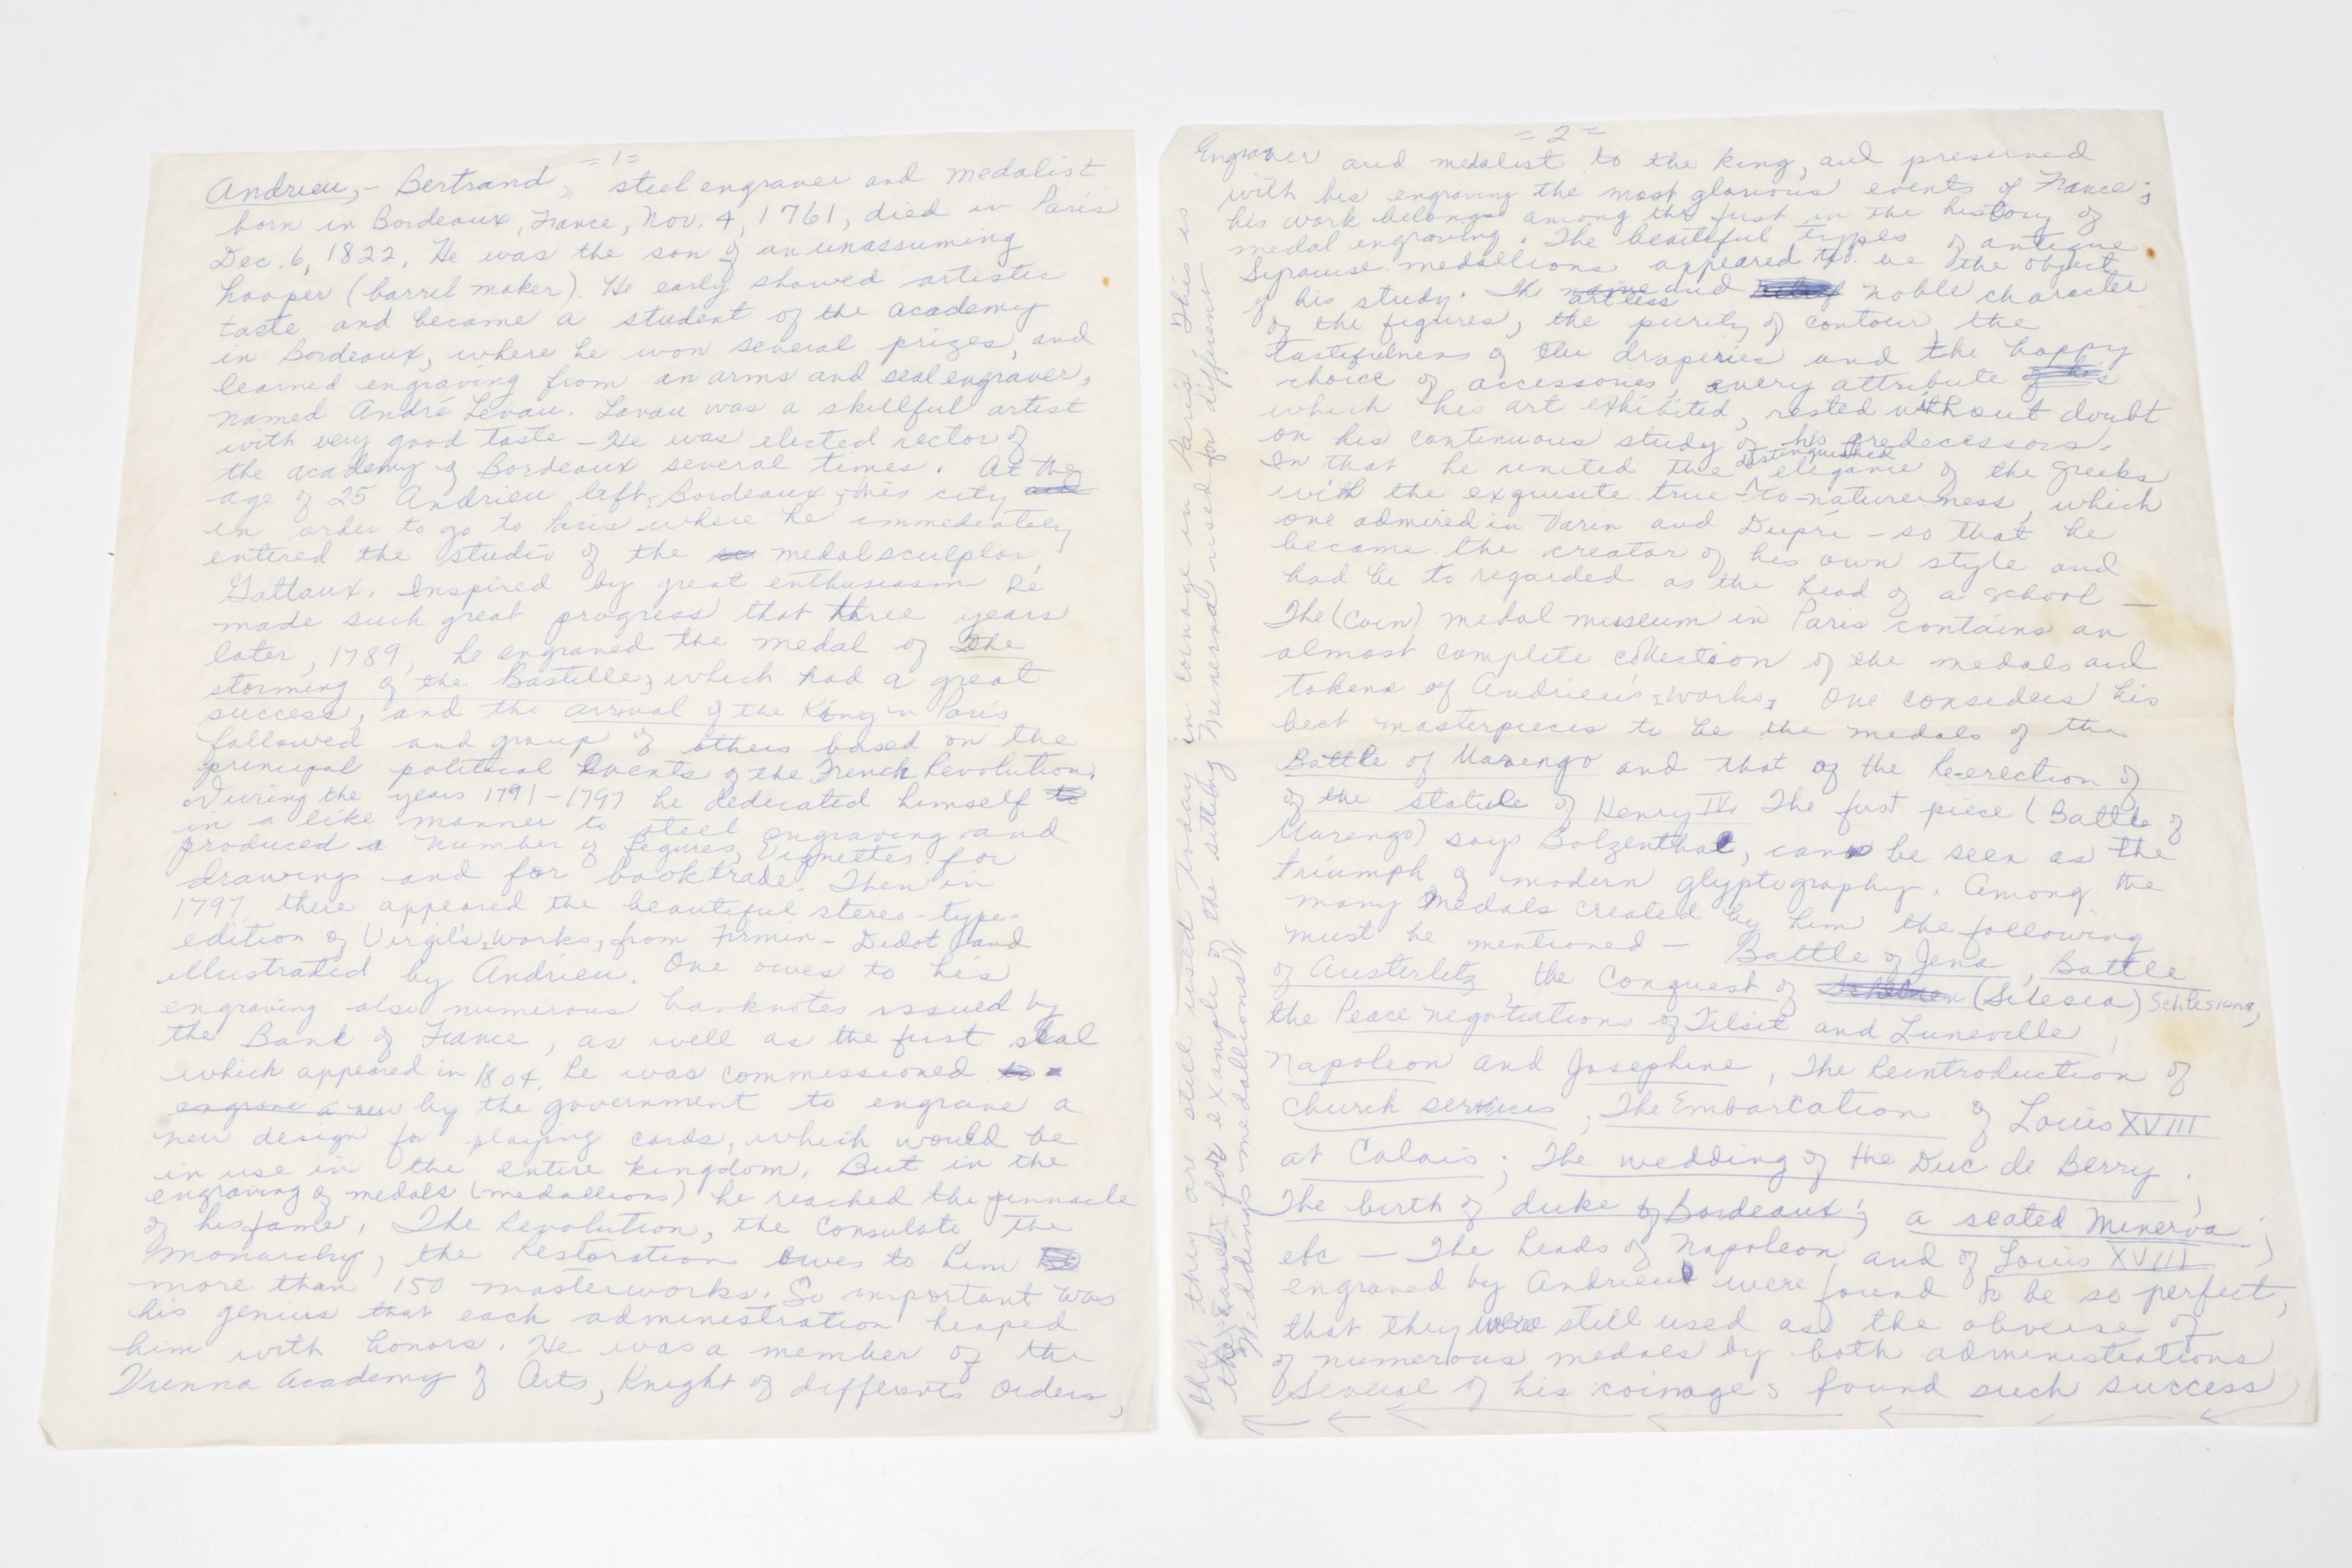 =1=
Andrieu,- Bertrand, steel engraver and medalist
born in Bordeaux, France, Nov. 4, 1761, died in Paris
Dec. 6, 1822. He was the son of an unassuming
hooper (barrel maker). He early showed artistic
taste and became a student of the academy
in Bordeaux, where he won several prizes, and
learned engraving from an arms and seal engraver,
named André Levau. Lavau was a skillful artist
with very good taste - He was elected rector of
the academy of Bordeaux several times. At the
age of 25 Andrieu left Bordeaux this city and
in order to go to Paris where he immediately
entered the studio of the medal sculptor,
Gattaux. Inspired by great enthusiasm he
made such great progress that three years
later, 1789, he engraved the medal of the
storming of the Bastille, which had a great
success, and the arrival of the King in Paris
followed and group of others based on the
principal political events of the French Revolution.
During the years 1791-1797 he dedicated himself to
in a like manner to steel engraving and
produced a number of figures, vignettes for
drawings and for book trade. Then in
1797 there appeared the beautiful stereo-type-
edition of Virgil's works, from Firmin-Didot and
illustrated by Andrieu. One owes to his
engraving also numerous banknotes issued by
the Bank of France, as well as the first seal
which appeared in 1804. he was commissioned to
engrave a new by the government to engrave a
new design for playing cards, which would be
in use in the entire kingdom. But in the
engraving of medals (medallions) he reached the pinnacle
of his fame. The Revolution, the Consulate, the
monarchy, the Restoration owes to him
more than 150 masterworks. So important was
his genius that each administration heaped
him with honors. He was a member of the
Vienna Academy of Arts, Knight of differents Orders,
=2=
Engraver and medalist to the king, and preserved
with his engraving the most glorious events of France;
his work belongs among the first in the history of
medal engraving. The beautiful types of antique
Syracuse medallions appeared to be the object
of his study. The name artless and relief noble character
of the figures, the purity of contour, the
tastefulness of the draperies and the happy
choice of accessories, every attribute of his
which his art exhibited, rested without doubt
on his continuous study of his predecessors.
In that he united the distinguished elegance of the Greeks
with the exquisite true-to-nature-ness, which
one admired in Varin and Dupré - so that he
became the creator of his own style and
had be to regarded as the head of a school -
The (coin) medal museum in Paris contains an
almost complete collection of the medals and
tokens of Andrieu's works. One considers his
best masterpieces to be the medals of the
Battle of Marengo and that of the Re-erection of
of the statue of Henry IV. The first piece (Battle of
Marengo) says Bolzenthal, can be seen as the
triumph of modern glyptography. Among the
many medals created by him the following
must be mentioned - Battle of Jena, Battle
of Austerlitz, the Conquest of (Silesea) Schlesiens,
the Peace negotiations of Tilsit and Luneville,
Napoleon and Josephine, The Reintroduction of
church services; The Embarcation of Louis XVIII
at Calais; The wedding of the Duc de Berry;
The birth of duke of Bordeaux; a seated Minerva;
etc - The heads of Napoleon and of Louis XVIII
engraved by Andrieu were found to be so perfect,
that they were still used as the obverse of
of numerous medals by both administrations
Several of his coinages found such success
that they are still used today in coinage in Paris. This is
the case for example of the sitting Minerva used for different
Weddings medallions